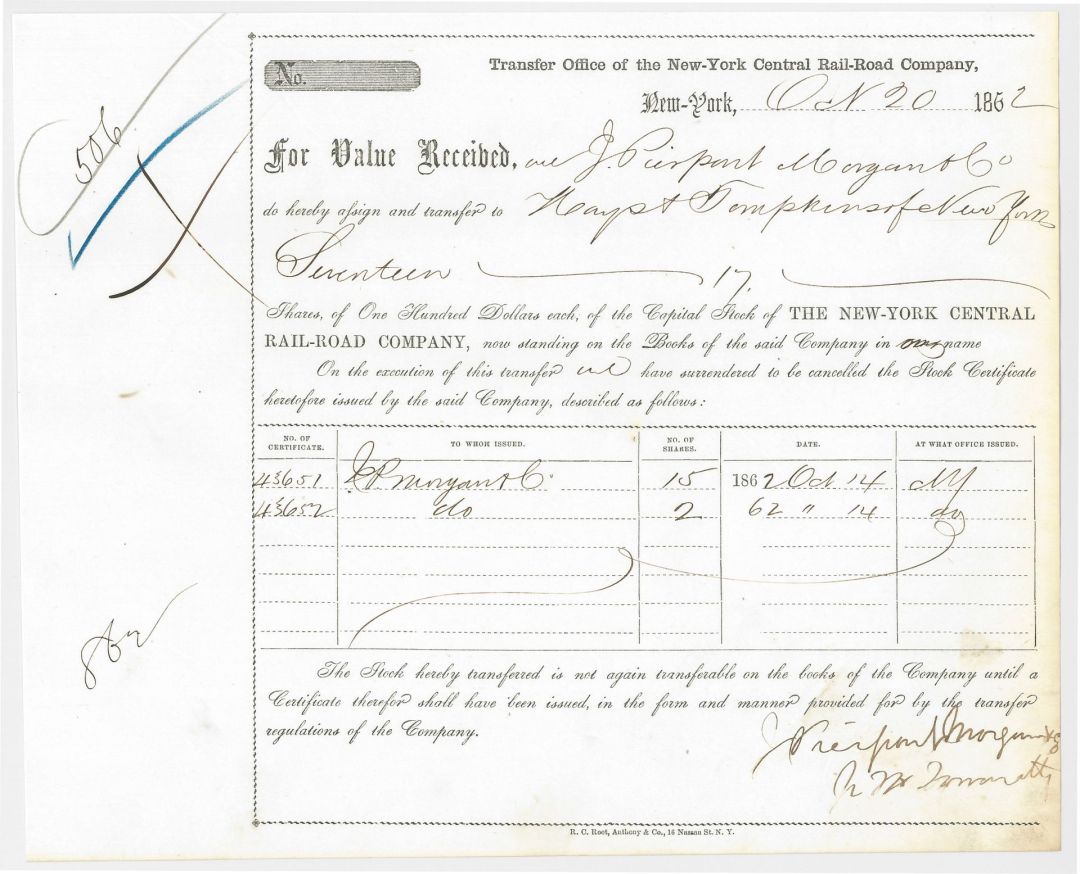 506
No.
Transfer Office of the New-York Central Rail-Road Company,
New-York, Oct 20 1862
For Value Received, we J. Pierpont Morgan & Co
do hereby assign and transfer to Hays & Tompkins of New York
Seventeen 17.
Shares, of One Hundred Dollars each, of the Capital Stock of THE NEW-YORK CENTRAL
RAIL-ROAD COMPANY, now standing on the Books of the said Company in our name
On the execution of this transfer we have surrendered to be cancelled the Stock Certificate
heretofore issued by the said Company, described as follows:
NO. OF CERTIFICATE. TO WHOM ISSUED. NO. OF SHARES. DATE. AT WHAT OFFICE ISSUED.
43651 J P Morgan & Co. 15 1862 Oct 14 NY
43652 do 2 62 " 14 do
The Stock hereby transferred is not again transferable on the books of the Company until a
Certificate therefor shall have been issued, in the form and manner provided for by the transfer
regulations of the Company.
J Pierpont Morgan & Co
R. C. Root, Anthony & Co., 16 Nassau St. N. Y.